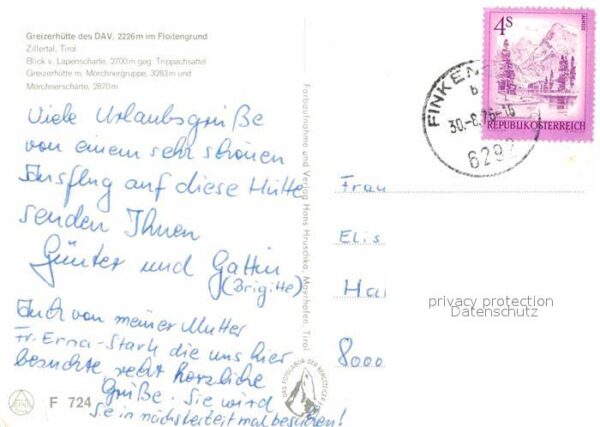 Greizerhütte des DAV, 2226m im Floitengrund
Zillertal, Tirol
Blick v. Lapenscharte, 2700m geg. Trippachsattel
Greizerhütte m. Mörchnergruppe, 3283m und
Mörchnerscharte, 2870m
Viele Urlaubsgrüße
von einem sehr schönen
Ausflug auf diese Hütte
senden Ihnen
Günter und Gattin
(Brigitte)
Auch von meiner Mutter
Fr. Erna Stark die uns hier
besuchte, recht herzliche
Grüße. Sie wird
Sie in nächster Zeit mal besuchen!
F 724
Farbaufnahme und Verlag Hans Hruschka, Mayrhofen, Tirol
DAS EDELKORN DER BERGSTEIGER
4S
ALMSEE
REPUBLIK ÖSTERREICH
FINKEN
b
30.-8.76-16
6292
Frau
Elis
Hai
8000
privacy protection
Datenschutz